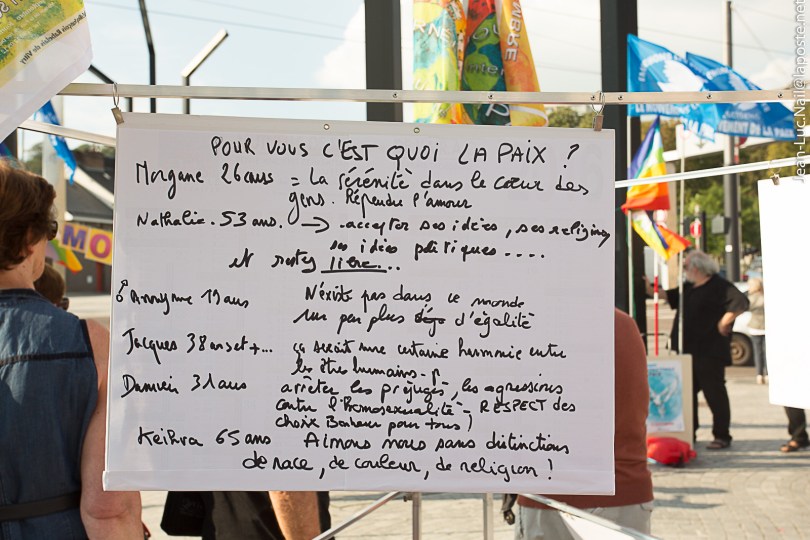 POUR VOUS C'EST QUOI LA PAIX ?
Morgane 26 ans = La sérénité dans le cœur des
gens. Répendre l'amour
Nathalie. 53 ans. → .accepter ses idées, ses religions,
ses idées politiques ....
et rester libre...
♂ Anonyme 19 ans N'éxiste pas dans ce monde
un peu plus d'égalité
Jacques 38 ans et +... ça serait une certaine harmonie entre
les êtres humains -
Damien 31 ans arrêter les préjugés, les agressions
contre l'homosexualité - RESPECT des
choix Bonheur pour tous )
65 ans Aimons nous sans distinctions
de race, de couleur, de religion !
MO
Jean-Luc.Nail@laposte.net